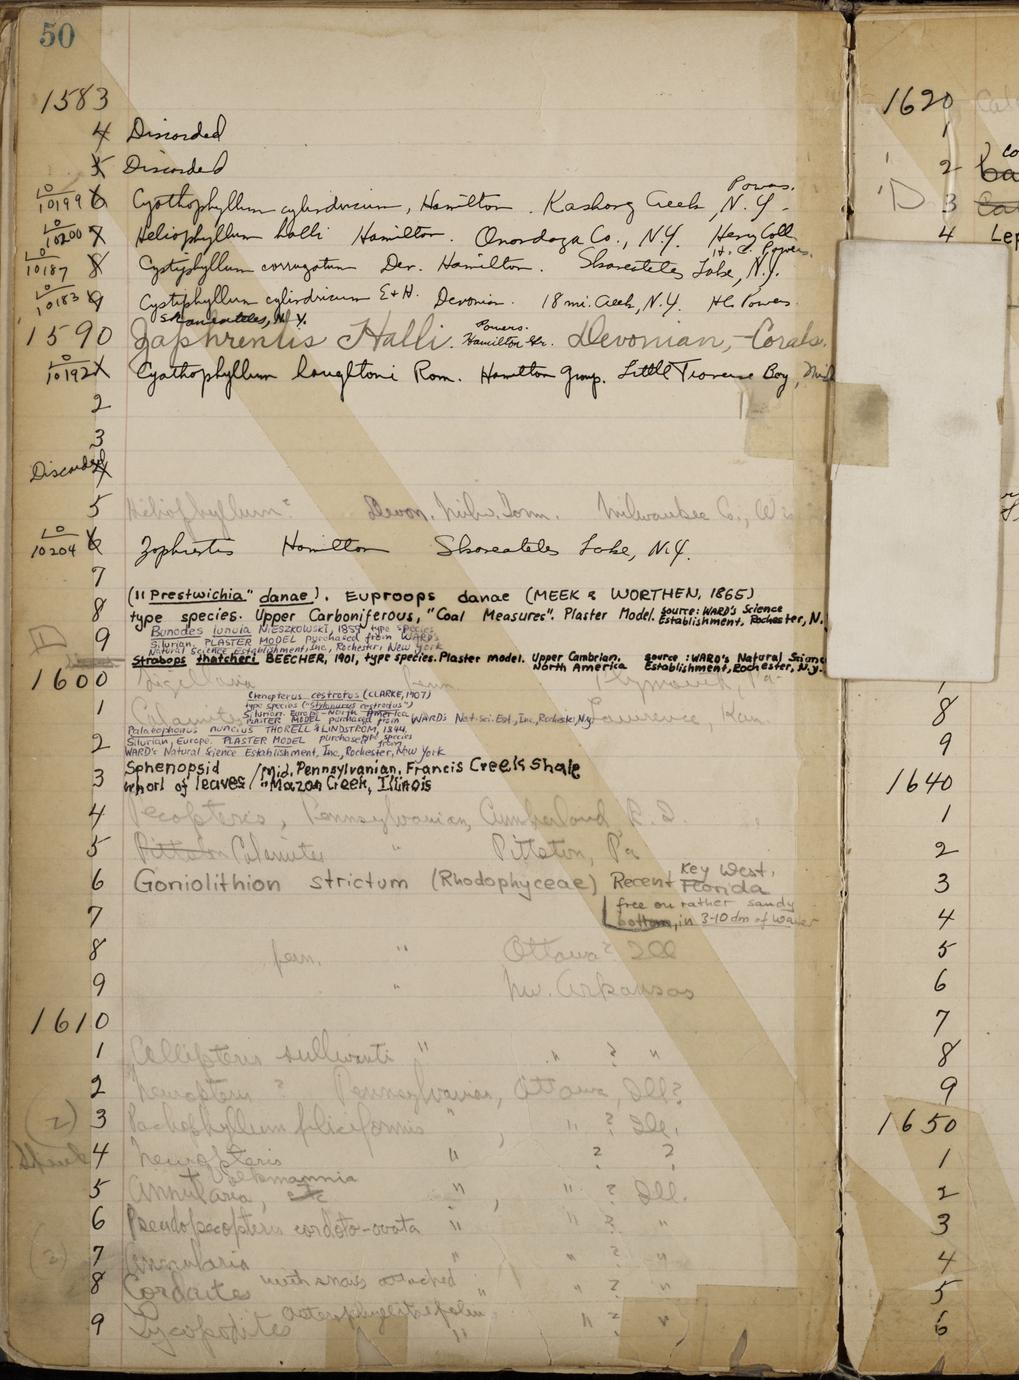 50
1583
4 Discarded
5 Discarded
Powers.
10/10199 6 Cyathophyllum cylindricum, Hamilton. Kashong Creek, N.Y.
10/10200 7 Heliophyllum halli Hamilton. Onondaga Co., N.Y. Henry Coll.
H. C. Powers.
10/10187 8 Cystiphyllum corrugatum Dev. Hamilton. Skaneateles Lake, N.Y.
10/10183 9 Cystiphyllum cylindricum E+H. Devonian. 18 mi. Creek, N.Y. H.C. Powers.
Skaneateles, N.Y.
1590 Zaphrentis Halli. Powers. Hamilton Gr. Devonian, - Corals.
10/10192 1 Cyathophyllum houghtoni Rom. Hamilton Group. Little Traverse Bay,
2
3
Discarded 4
5 Heliophyllum? Devon. Milw. Form. Milwaukee Co., Wis
10/10204 6 Zaphrentis Hamilton Skaneateles Lake, N.Y.
7
("Prestwichia" danae). Euproops danae (MEEK & WORTHEN, 1865)
8 type species. Upper Carboniferous, "Coal Measures". Plaster Model. source: WARD'S Science Establishment, Rochester, N.
Bunodes lunula NIESZKOWSKI, 1859 type species
9 Silurian. PLASTER MODEL purchased from WARD'S
Natural Science Establishment, Inc., Rochester, New York
Strabops thatcheri BEECHER, 1901, type species. Plaster model. Upper Cambrian, North America source: WARD'S Natural Scienc Establishment, Rochester, N.Y.
1600 Sigillaria Penn. Plymouth, Pa.
Ctenopterus cestrotus (CLARKE, 1907)
type species ("Stylonurus cestrotus")
Silurian. Europe - North America
1 Calamites PLASTER MODEL purchased from WARD'S Nat. Sci. Est., Inc., Rochester, N.Y. Lawrence, Kan.
Palaeophonus nuncius THORELL & LINDSTROM, 1884,
2 Silurian, Europe. PLASTER MODEL purchased from type species
WARD'S Natural Science Establishment, Inc., Rochester, New York
Sphenopsid / Mid. Pennsylvanian, Francis Creek Shale
3 whorl of leaves / "Mazon Creek, Illinois
4 Pecopteris, Pennsylvanian, Cumberland, R.I.
5 Pittston Calamites " Pittston, Pa
6 Goniolithion strictum (Rhodophyceae) Recent Key West, Florida
free on rather sandy
7 bottom, in 3-10 dm of water
8 fern. " Ottawa? Ill
9 " Nw. Arkansas
1610
1 Callipteris sullivanti " " ? "
2 Neuropteris ? Pennsylvanian, Ottawa, Ill?
(2) 3 Pachyphyllum filiciformis " , " ? Ill.
4 Neuropteris " ? ?
Volkmannia
5 Annularia, " , " ? Ill.
6 Pseudopecopteris cordato-ovata " " ? "
(2) 7 Annularia " " ? "
8 Cordaites with snails attached " " ? "
9 Lycopodites " " ? "
1620
1
2
3
4 Lep
7
8
9
1640
1
2
3
4
5
6
7
8
9
1650
1
2
3
4
5
6